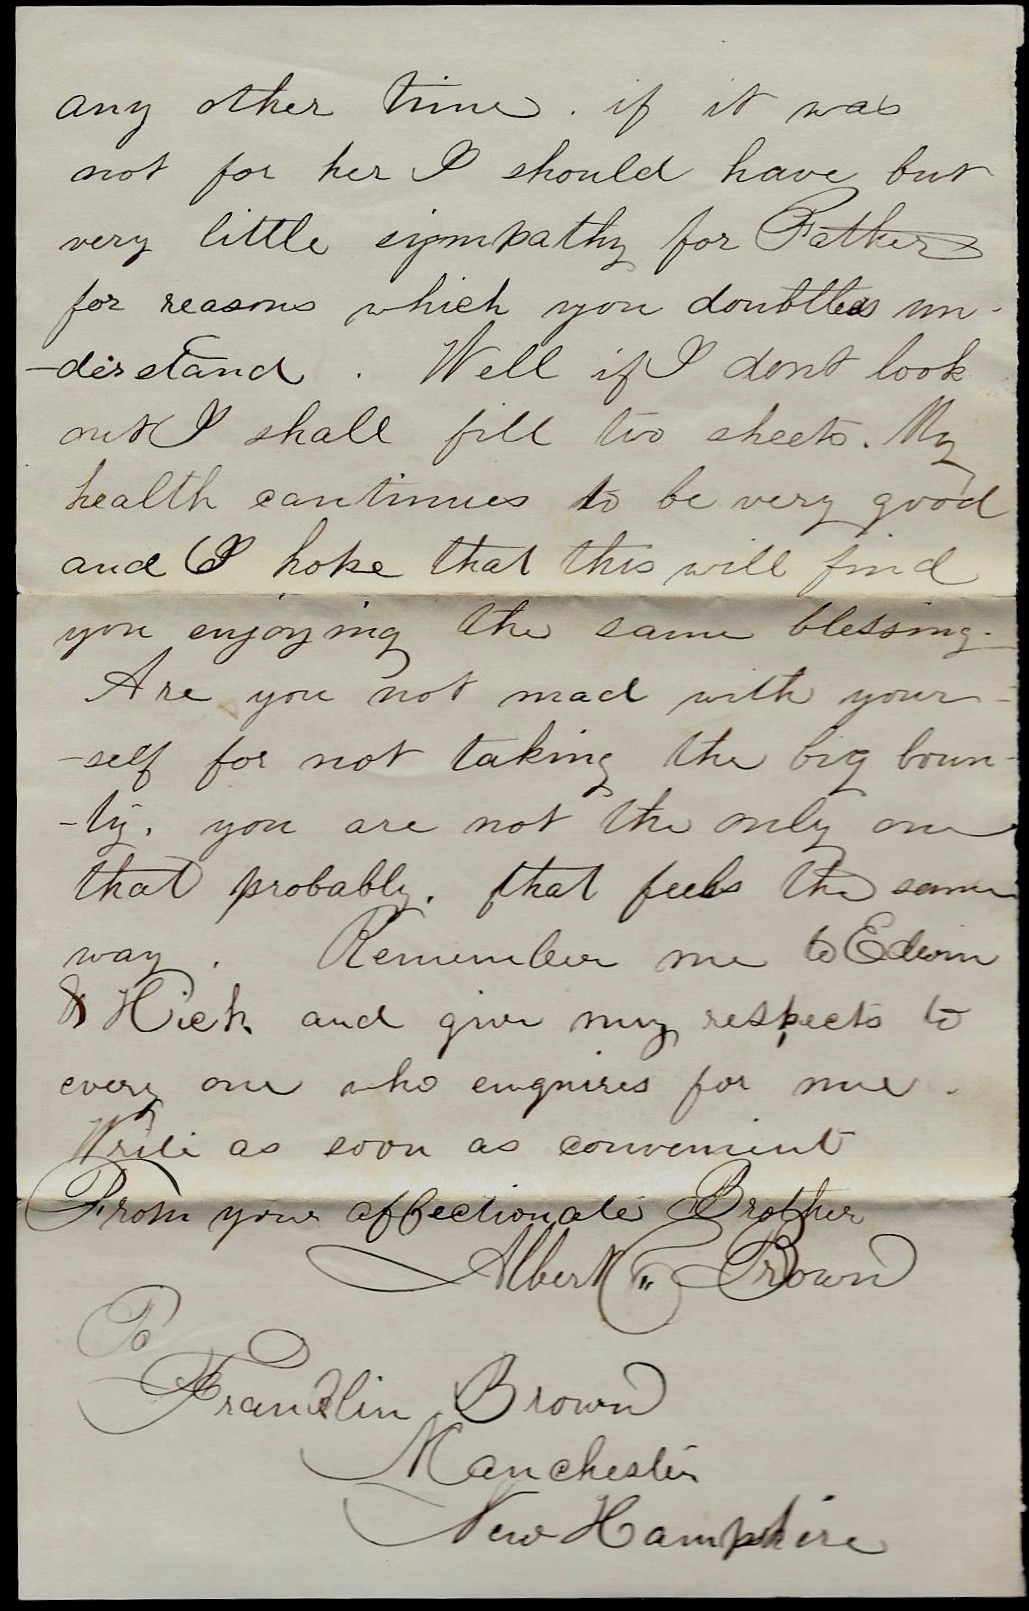 any other time. if it was
not for her I should have but
very little sympathy for Father
for reasons which you doubtless un-
-derstand. Well if I dont look
out I shall fill two sheets. My
health continues to be very good
and I hope that this will find
you enjoying the same blessing.
Are you not mad with your-
-self for not taking the big boun-
-ty. you are not the only one
that probably. that feels the same
way. Remember me to Edwin
& Hick. and give my respects to
every one who enquires for me.
Write as soon as convenient
From your affectionate Brother
Albert Brown
To
Franklin Brown
Manchester
New Hampshire